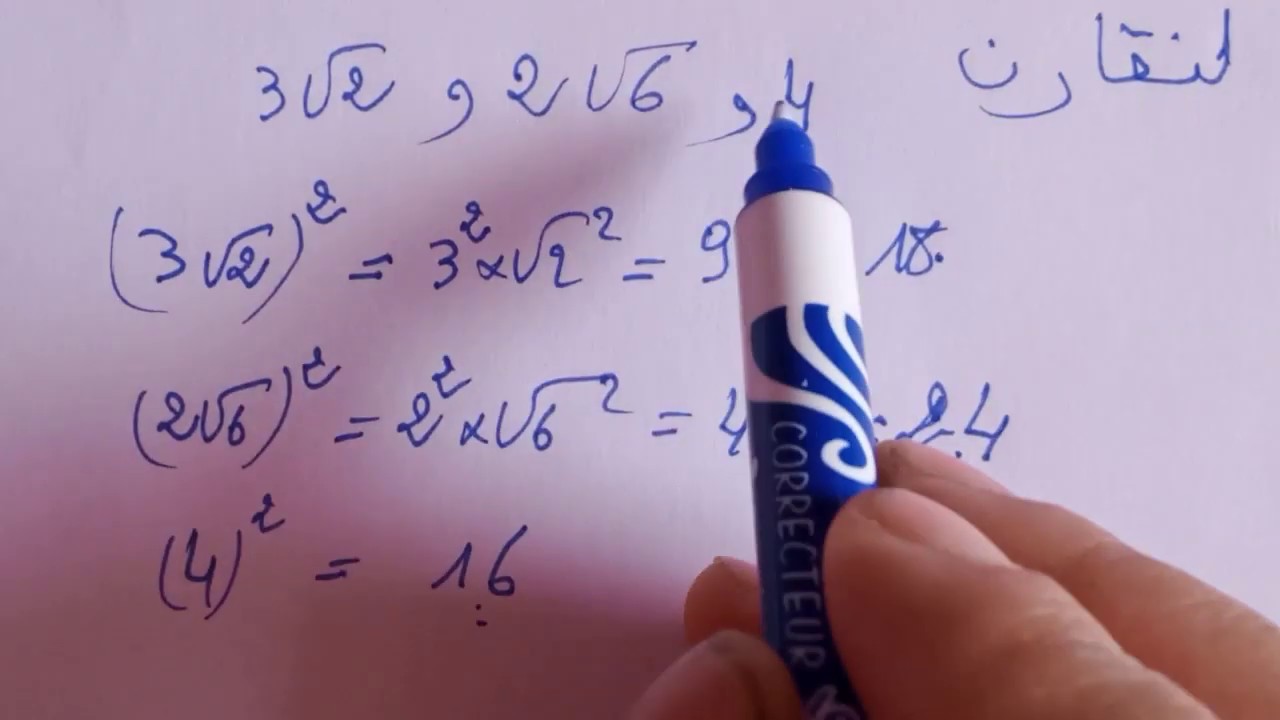 لنقارن 3√2 , 2√6 , 4
(3√2)² = 3² × √2² = 9 18.
(2√6)² = 2² × √6² = 4 = 24
(4)² = 16
CORRECTEUR